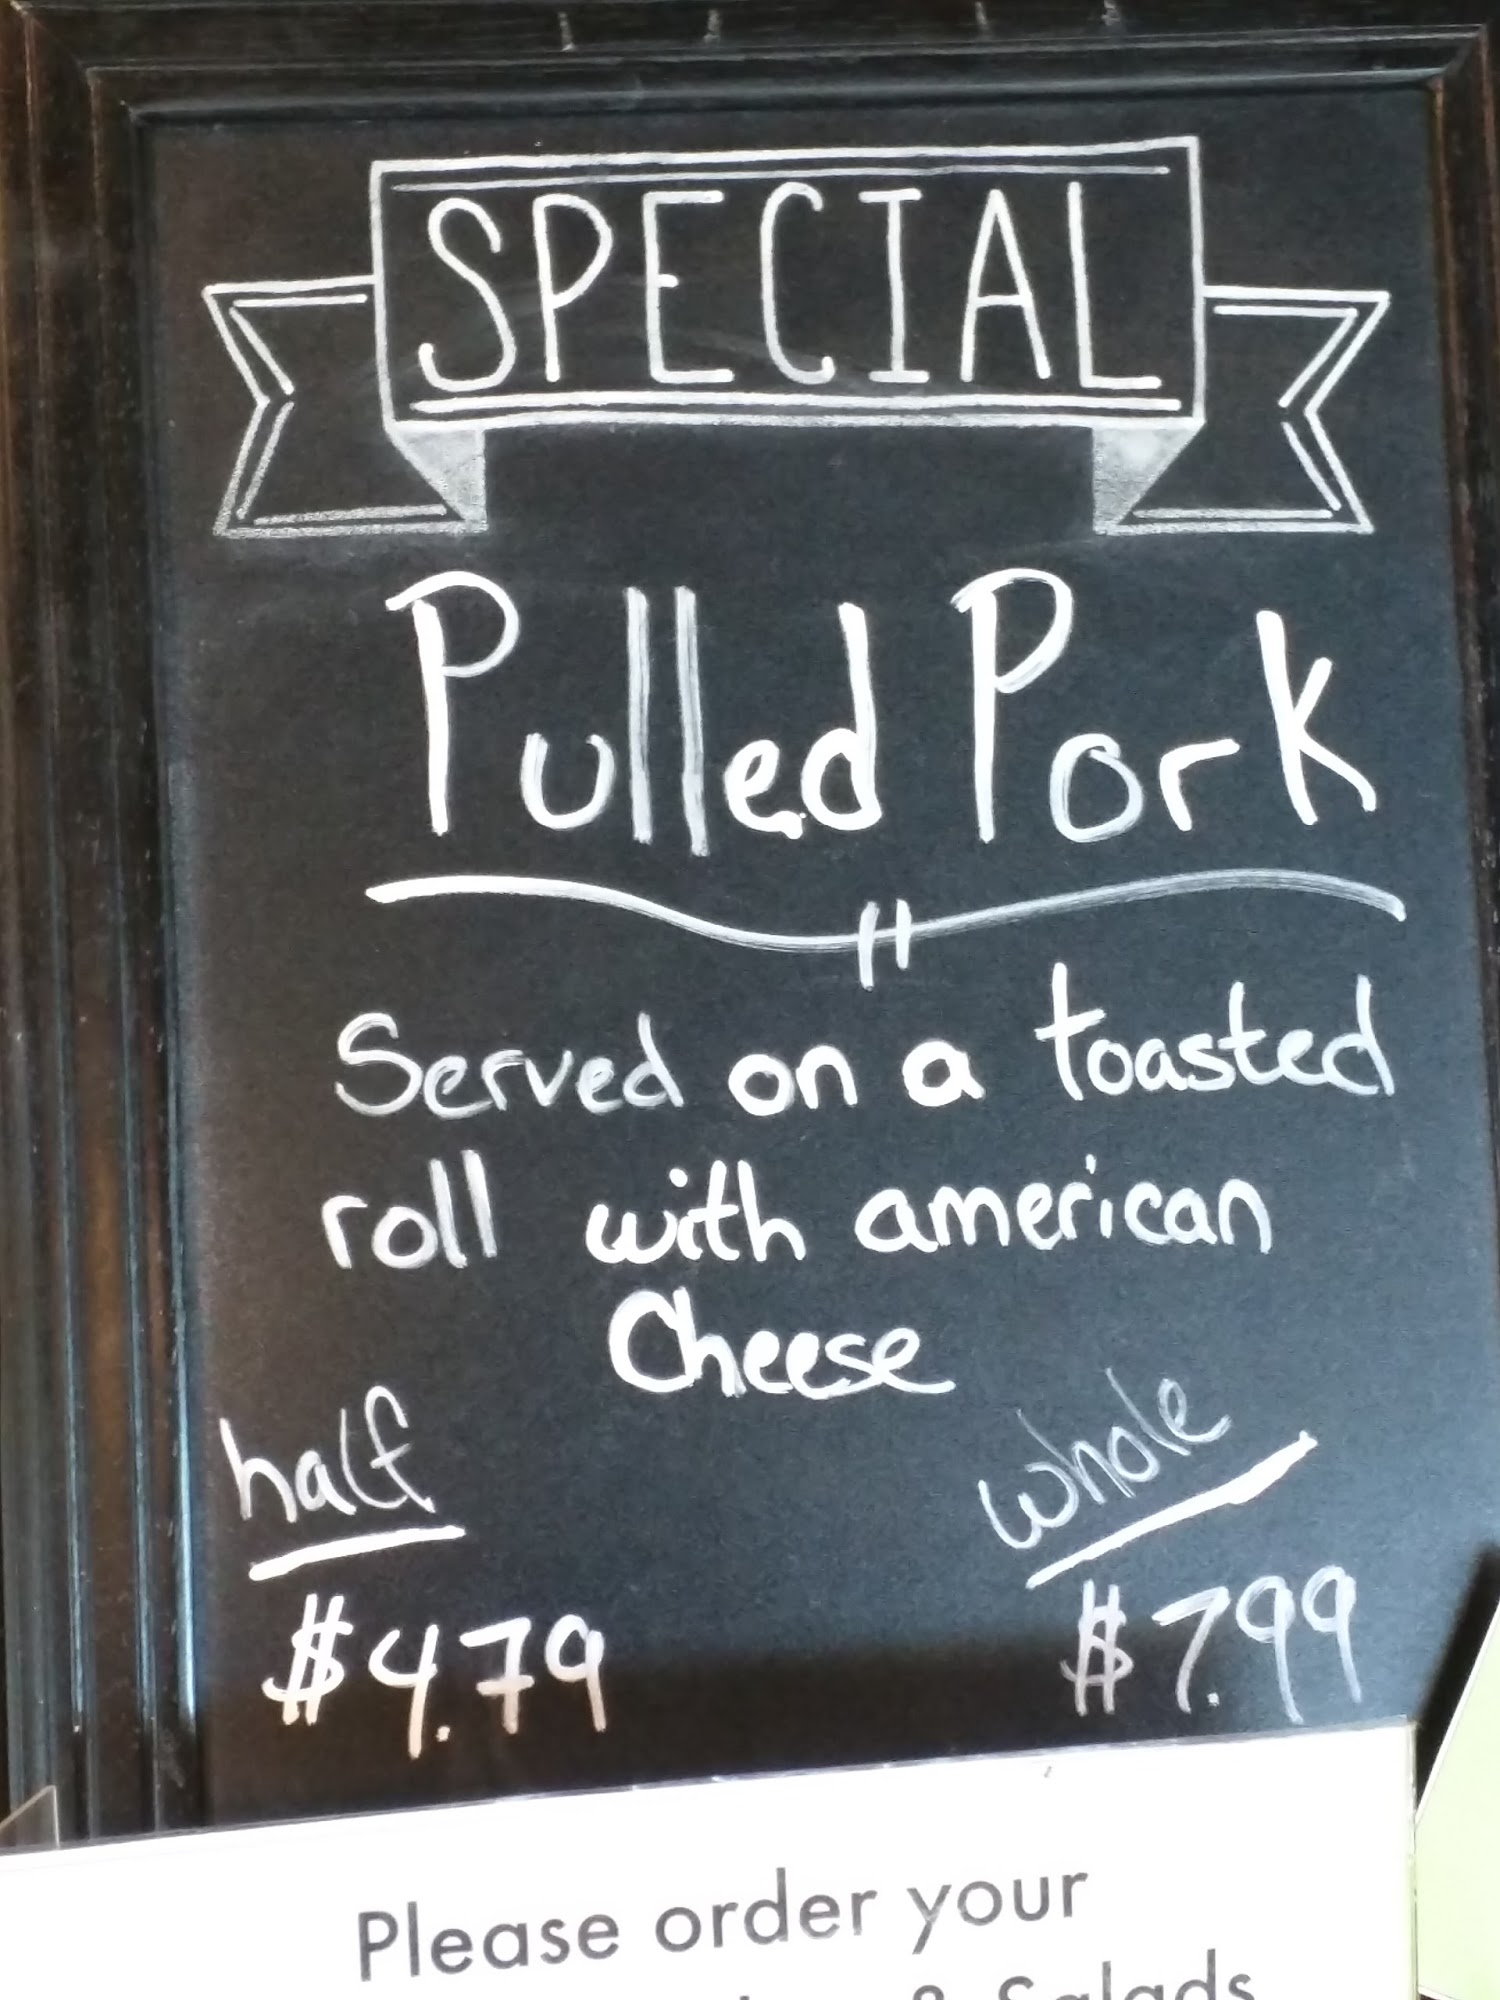 SPECIAL
Pulled Pork
Served on a toasted
roll with american
Cheese
half
$4.79
whole
$7.99
Please order your
& Salads